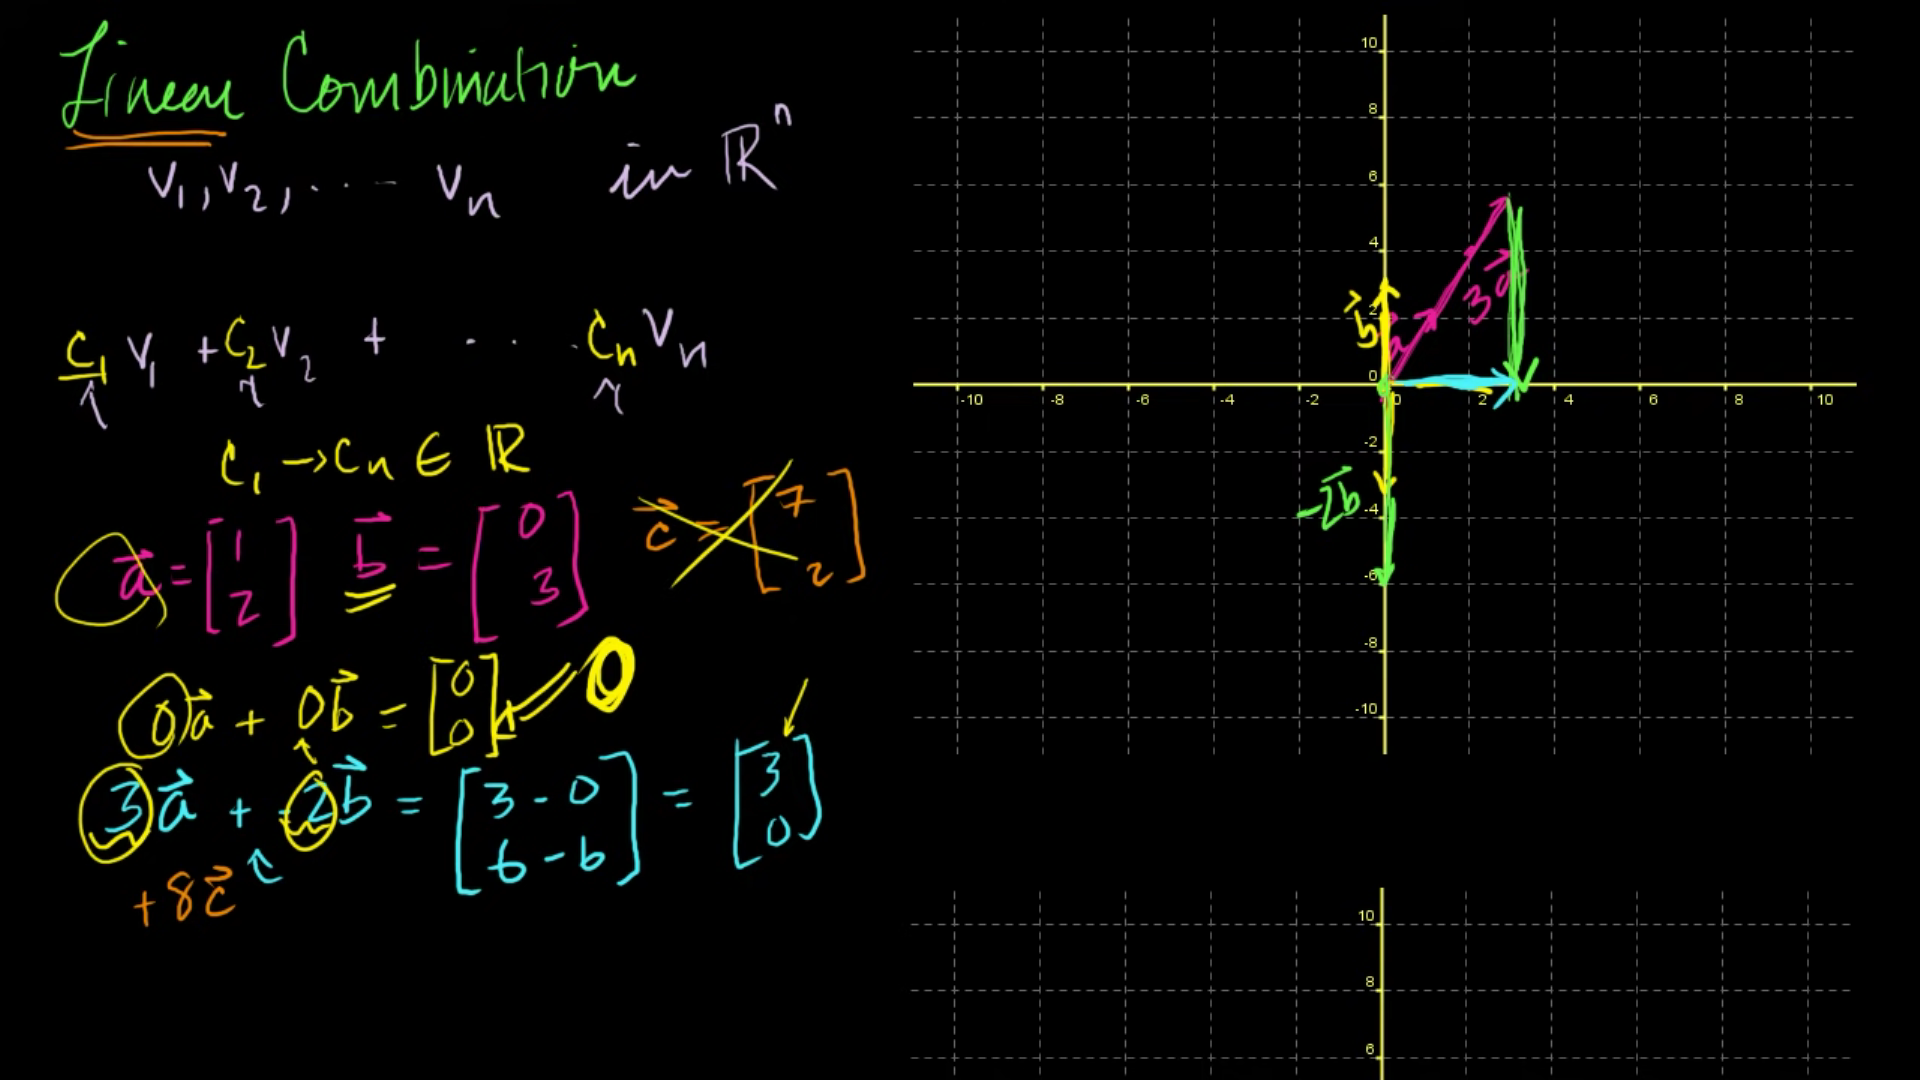 Linear Combination
v₁, v₂, ... vₙ in ℝⁿ
c₁v₁ + c₂v₂ + ... cₙvₙ
c₁ → cₙ ∈ ℝ
a⃗ = [1 2] b⃗ = [0 3] c⃗ = [7 2]
0a⃗ + 0b⃗ = [0 0] 0
3a⃗ + -2b⃗ = [3-0 6-6] = [3 0]
+8c⃗
10
8
6
4
2
0
-2
-4
-6
-8
-10
-10 -8 -6 -4 -2 0 2 4 6 8 10
b⃗
a
3a⃗
-2b⃗
10
8
6